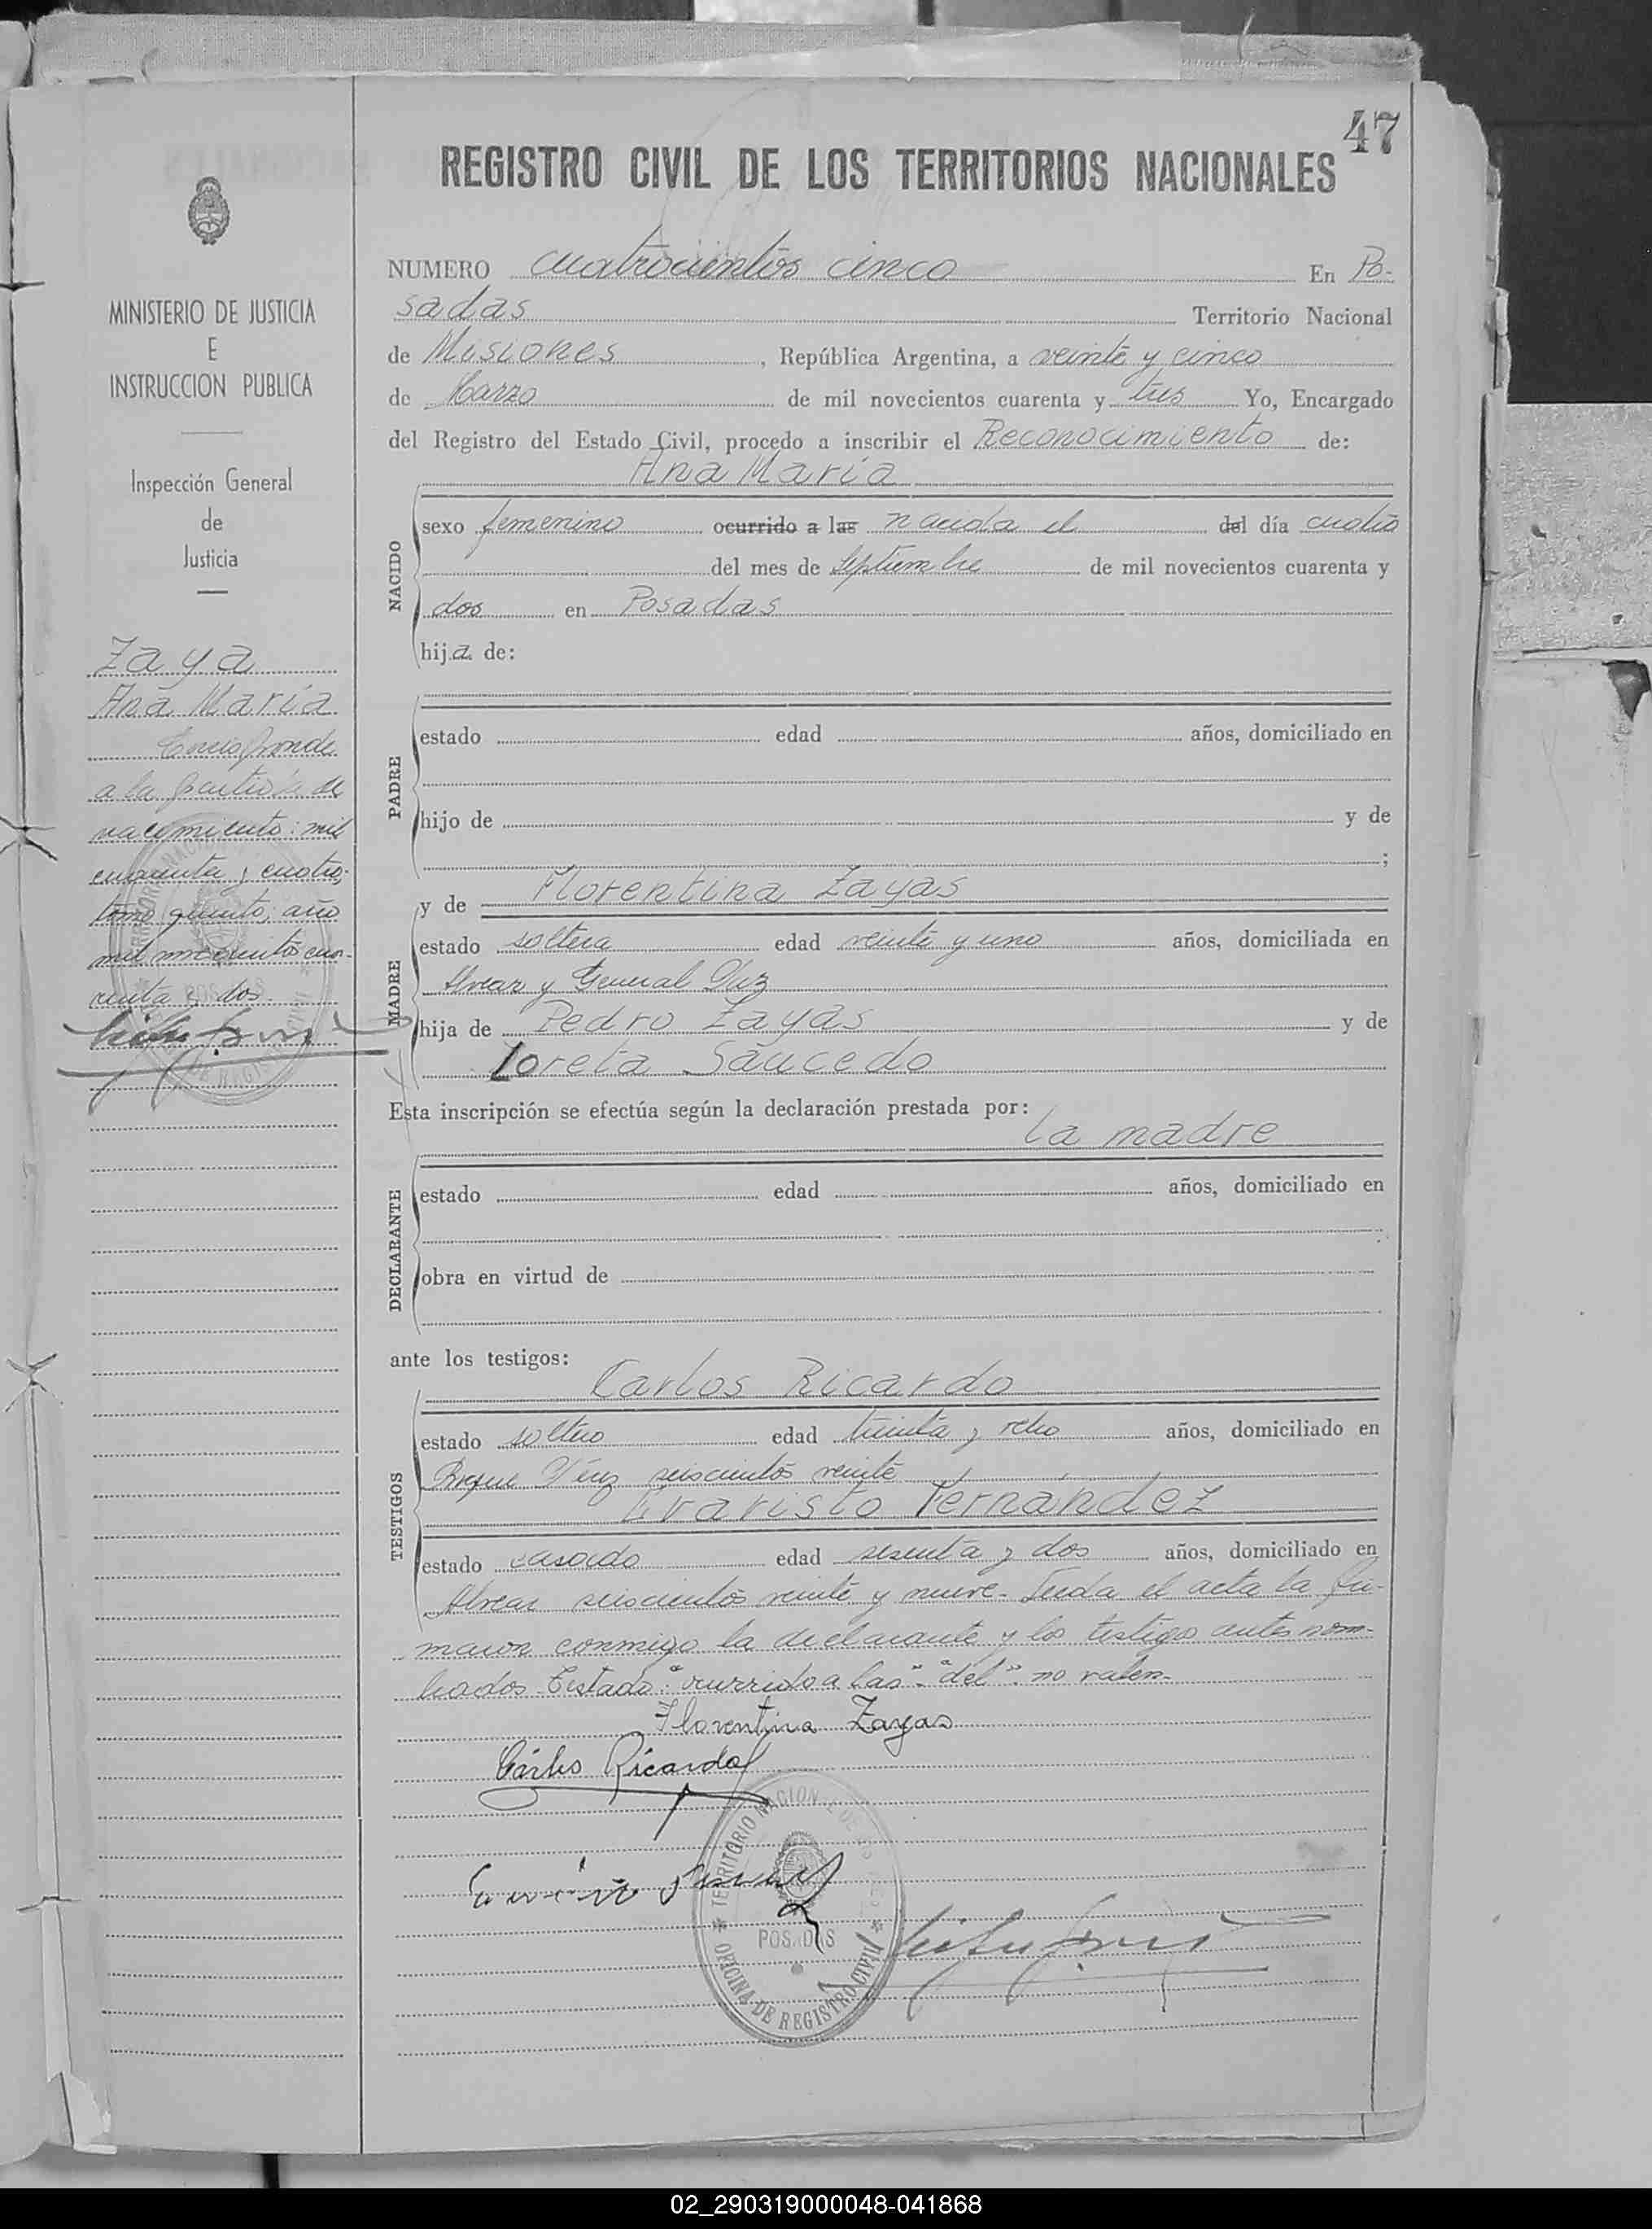 47
REGISTRO CIVIL DE LOS TERRITORIOS NACIONALES
MINISTERIO DE JUSTICIA
E
INSTRUCCION PUBLICA
Inspección General
de
Justicia
Zaya
Ana María
Corresponde
a la partida de
nacimiento: mil
cuarenta y cuatro,
tomo quinto, año
mil novecientos cua-
renta y dos.
NUMERO cuatrocientos cinco En Po-
sadas Territorio Nacional
de Misiones, República Argentina, a veinte y cinco
de Marzo de mil novecientos cuarenta y tres Yo, Encargado
del Registro del Estado Civil, procedo a inscribir el Reconocimiento de:
Ana María
NACIDO
sexo femenino ocurrido a las nacida el del día cuatro
del mes de septiembre de mil novecientos cuarenta y
dos en Posadas
hija de:
PADRE
estado edad años, domiciliado en
hijo de y de
;
MADRE
y de Florentina Zayas
estado soltera edad veinte y uno años, domiciliada en
Alvear y General Paz
hija de Pedro Zayas y de
Loreta Saucedo
Esta inscripción se efectúa según la declaración prestada por:
la madre
DECLARANTE
estado edad años, domiciliado en
obra en virtud de
ante los testigos:
Carlos Ricardo
TESTIGOS
estado soltero edad treinta y ocho años, domiciliado en
Roque Pérez seiscientos veinte
Evaristo Fernández
estado casado edad sesenta y dos años, domiciliado en
Alvear seiscientos veinte y nueve. Leida el acta la fir-
maron conmigo la declarante y los testigos antes nom-
brados. Testado: "ocurrido a las" "del" no valen.
Florentina Zayas
Carlos Ricardo
TERRITORIO NACIONAL DE MISIONES
POSADAS
OFICINA DE REGISTRO CIVIL
02_290319000048-041868